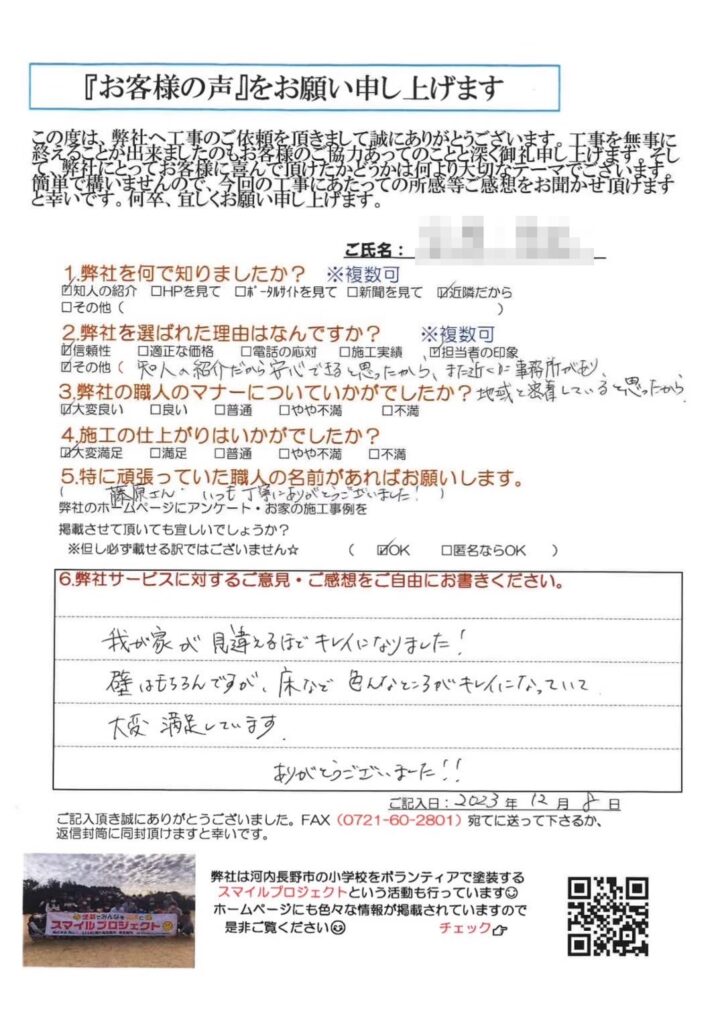 『お客様の声』をお願い申し上げます
この度は、弊社へ工事のご依頼を頂きまして誠にありがとうございます。工事を無事に
終えることが出来ましたのもお客様のご協力あってのことと深く御礼申し上げます。そし
て、弊社にとってお客様に喜んで頂けたかどうかは何より大切なテーマでございます。
簡単で構いませんので、今回の工事にあたっての所感等ご感想をお聞かせ頂けますと
と幸いです。何卒、宜しくお願い申し上げます。
ご氏名：
1.弊社を何で知りましたか？　※複数可
☑知人の紹介　□HPを見て　□ポータルサイトを見て　□新聞を見て　☑近隣だから
□その他（　　　）
2.弊社を選ばれた理由はなんですか？　※複数可
☑信頼性　□適正な価格　□電話の応対　□施工実績　☑担当者の印象
☑その他（　知人の紹介だから安心できると思ったから、また近くに事務所があり、
3.弊社の職人のマナーについていかがでしたか？　地域と密着していると思ったから
☑大変良い　□良い　□普通　□やや不満　□不満
4.施工の仕上がりはいかがでしたか？
☑大変満足　□満足　□普通　□やや不満　□不満
5.特に頑張っていた職人の名前があればお願いします。
（　藤原さん・いつも丁寧にありがとうございました！　）
弊社のホームページにアンケート・お家の施工事例を
掲載させて頂いても宜しいでしょうか？
※但し必ず載せる訳ではございません☆　（　☑OK　□匿名ならOK　）
6.弊社サービスに対するご意見・ご感想をご自由にお書きください。
我が家が見違えるほどキレイになりました！
壁はもちろんですが、床など色んなところがキレイになっていて
大変満足しています。
ありがとうございました!!
ご記入日：2023年12月8日
ご記入頂き誠にありがとうございました。FAX（0721-60-2801）宛てに送って下さるか、
返信封筒に同封頂けますと幸いです。
弊社は河内長野市の小学校をボランティアで塗装する
スマイルプロジェクトという活動も行っています☺
ホームページにも色々な情報が掲載されていますので
是非ご覧ください☺　チェック☞
スマイルプロジェクト